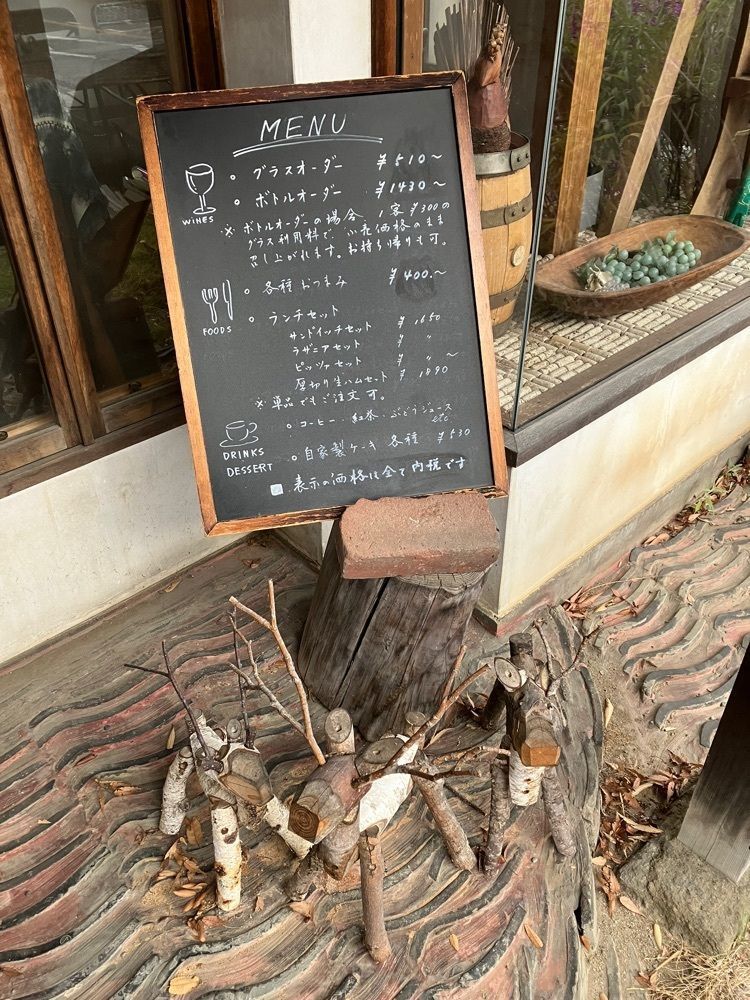 MENU
WINES
。グラスオーダー ¥510〜
。ボトルオーダー ¥1430〜
※ ボトルオーダーの場合、1客¥300の
グラス利用料で、小売価格のまま
召し上がれます。お持ち帰りも可。
FOODS
。各種おつまみ ¥400〜
。ランチセット
サンドイッチセット ¥1650
ラザニアセット ¥ 〃
ピッツァセット ¥ 〃 〜
厚切り生ハムセット ¥1890
※ 単品でもご注文可。
DRINKS
DESSERT
。コーヒー・紅茶・ぶどうジュース
etc
。自家製ケーキ 各種 ¥530
表示の価格は全て内税です